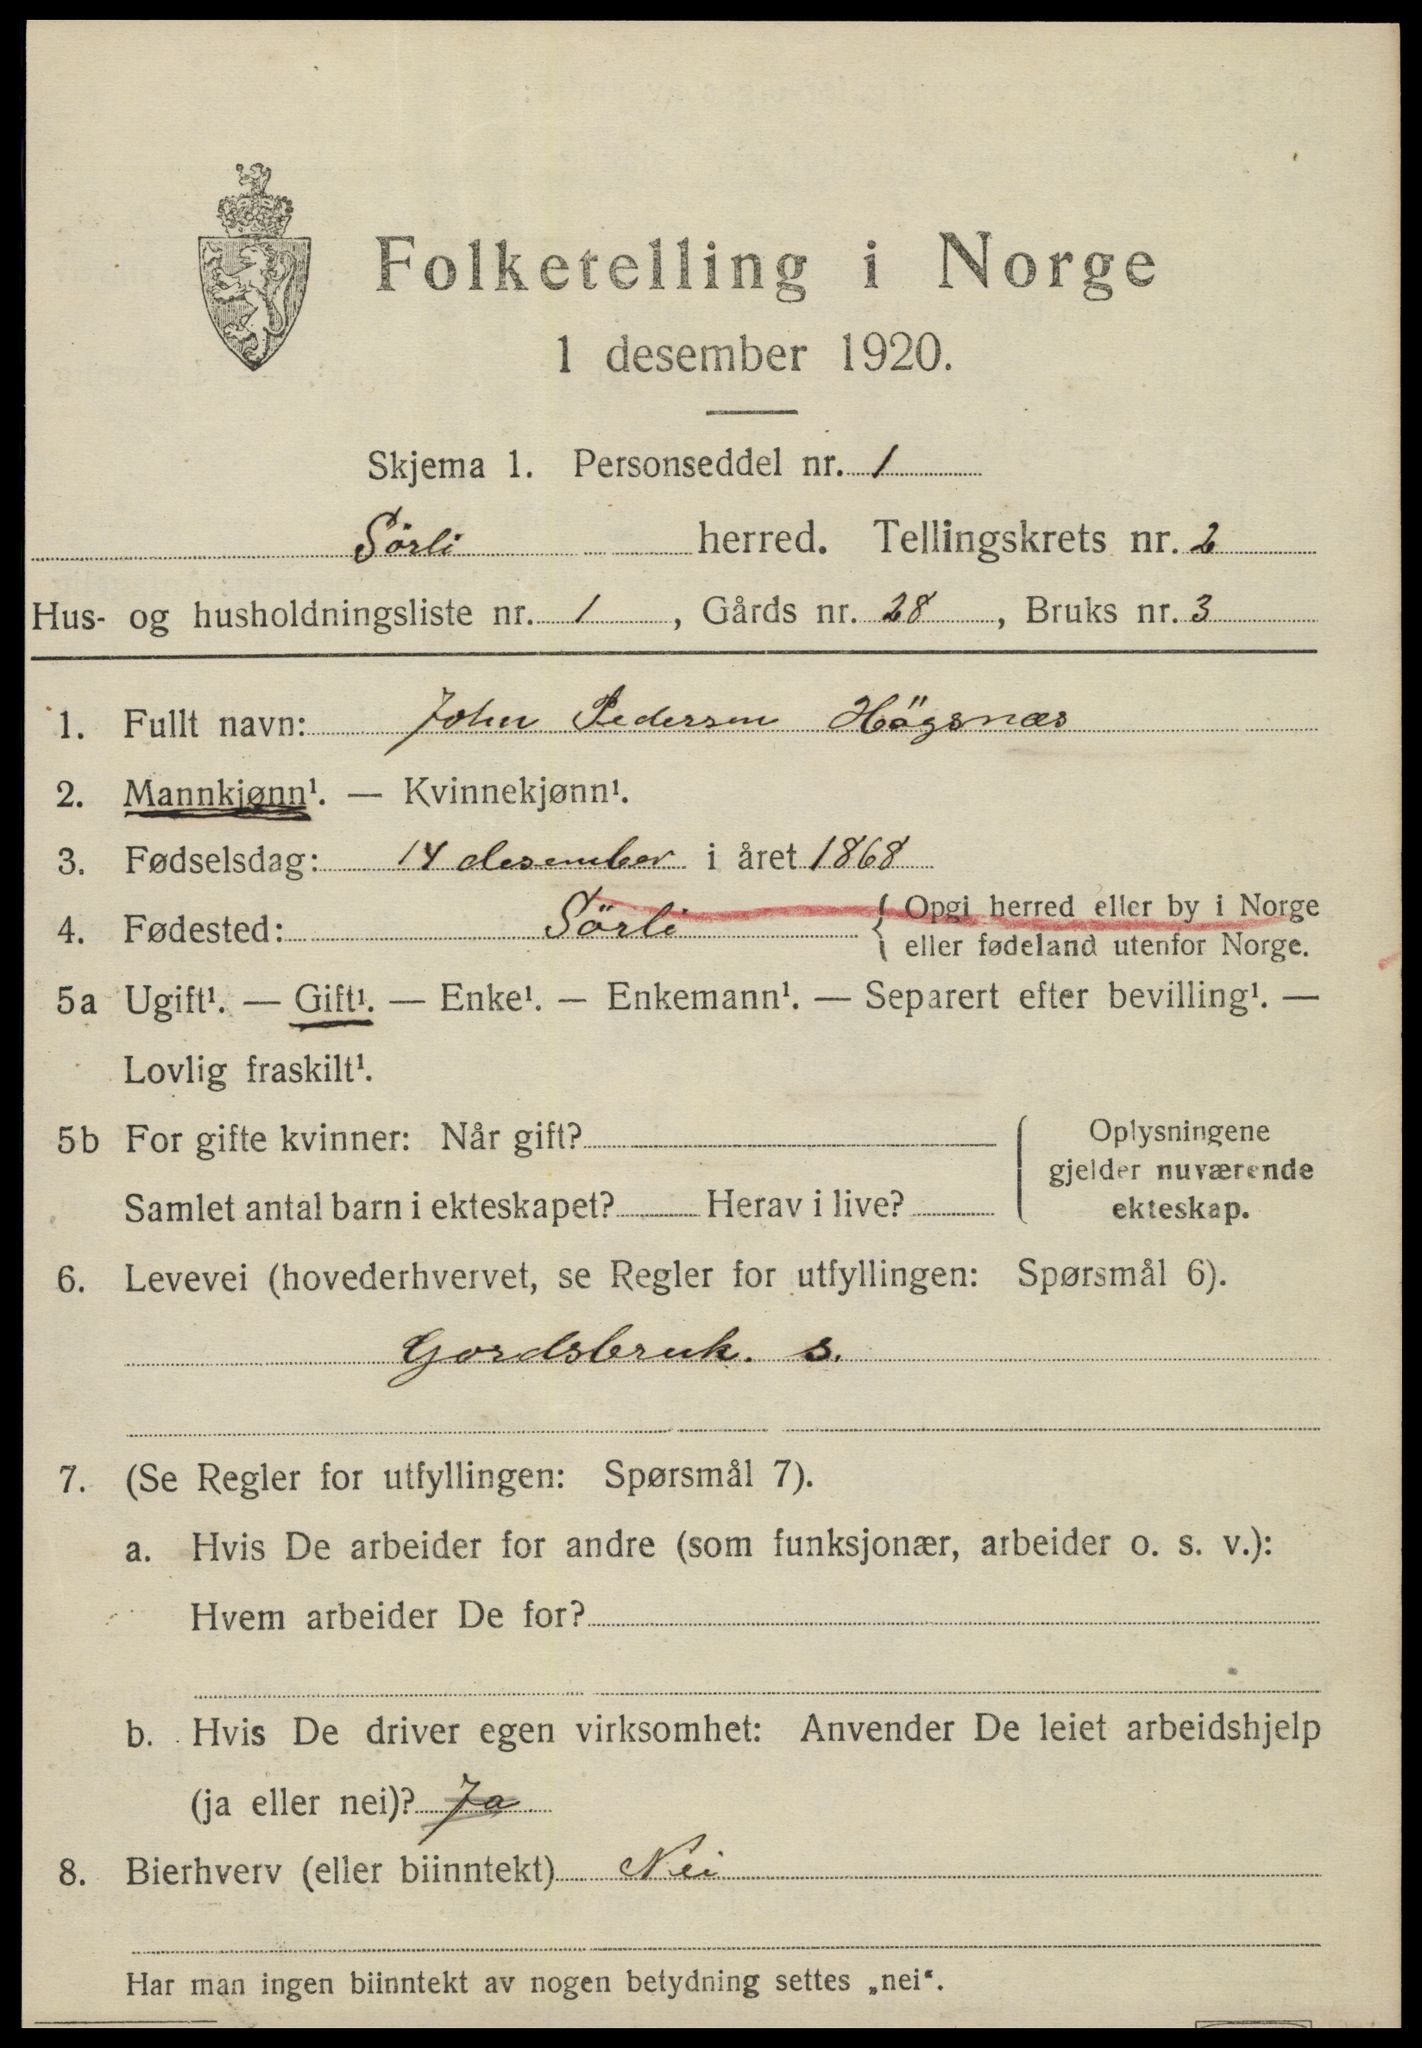 Folketelling i Norge
1 desember 1920.
Skjema 1. Personseddel nr. 1
Sörli herred. Tellingskrets nr. 2
Hus- og husholdningsliste nr. 1, Gårds nr. 28, Bruks nr. 3
1. Fullt navn: John Pedersen Högsnæs
2. Mannkjønn¹. — Kvinnekjønn¹.
3. Fødselsdag: 14 desember i året 1868
4. Fødested: Sörli { Opgi herred eller by i Norge
eller fødeland utenfor Norge.
5a Ugift¹. — Gift¹. — Enke¹. — Enkemann¹. — Separert efter bevilling¹. —
Lovlig fraskilt¹.
5b For gifte kvinner: Når gift?
Samlet antal barn i ekteskapet? Herav i live?
Oplysningene
gjelder nuværende
ekteskap.
6. Levevei (hovederhvervet, se Regler for utfyllingen: Spørsmål 6).
Gordsbruk. s.
7. (Se Regler for utfyllingen: Spørsmål 7).
a. Hvis De arbeider for andre (som funksjonær, arbeider o. s. v.):
Hvem arbeider De for?
b. Hvis De driver egen virksomhet: Anvender De leiet arbeidshjelp
(ja eller nei)? Ja
8. Bierhverv (eller biinntekt) Nei
Har man ingen biinntekt av nogen betydning settes „nei“.